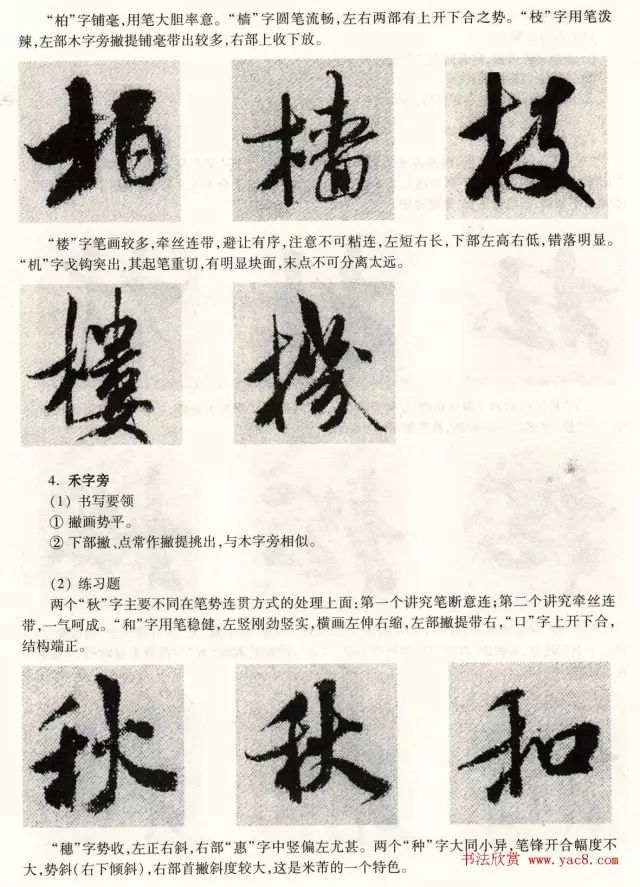 “柏”字铺毫,用笔大胆率意。“樯”字圆笔流畅,左右两部有上开下合之势。“枝”字用笔泼
辣,左部木字旁撇提铺毫带出较多,右部上收下放。
柏 檣 枝
“楼”字笔画较多,牵丝连带,避让有序,注意不可粘连,左短右长,下部左高右低,错落明显。
“机”字戈钩突出,其起笔重切,有明显块面,末点不可分离太远。
樓 機
4. 禾字旁
(1) 书写要领
① 撇画势平。
② 下部撇、点常作撇提挑出,与木字旁相似。
(2) 练习题
两个“秋”字主要不同在笔势连贯方式的处理上面;第一个讲究笔断意连;第二个讲究牵丝连
带,一气呵成。“和”字用笔稳健,左竖刚劲竖实,横画左伸右缩,左部撇提带右,“口”字上开下合,
结构端正。
秋 秋 和
“穗”字势收,左正右斜,右部“惠”字中竖偏左尤甚。两个“种”字大同小异,笔锋开合幅度不
大,势斜(右下倾斜),右部首撇斜度较大,这是米芾的一个特色。
书法欣赏 www.yac8.com